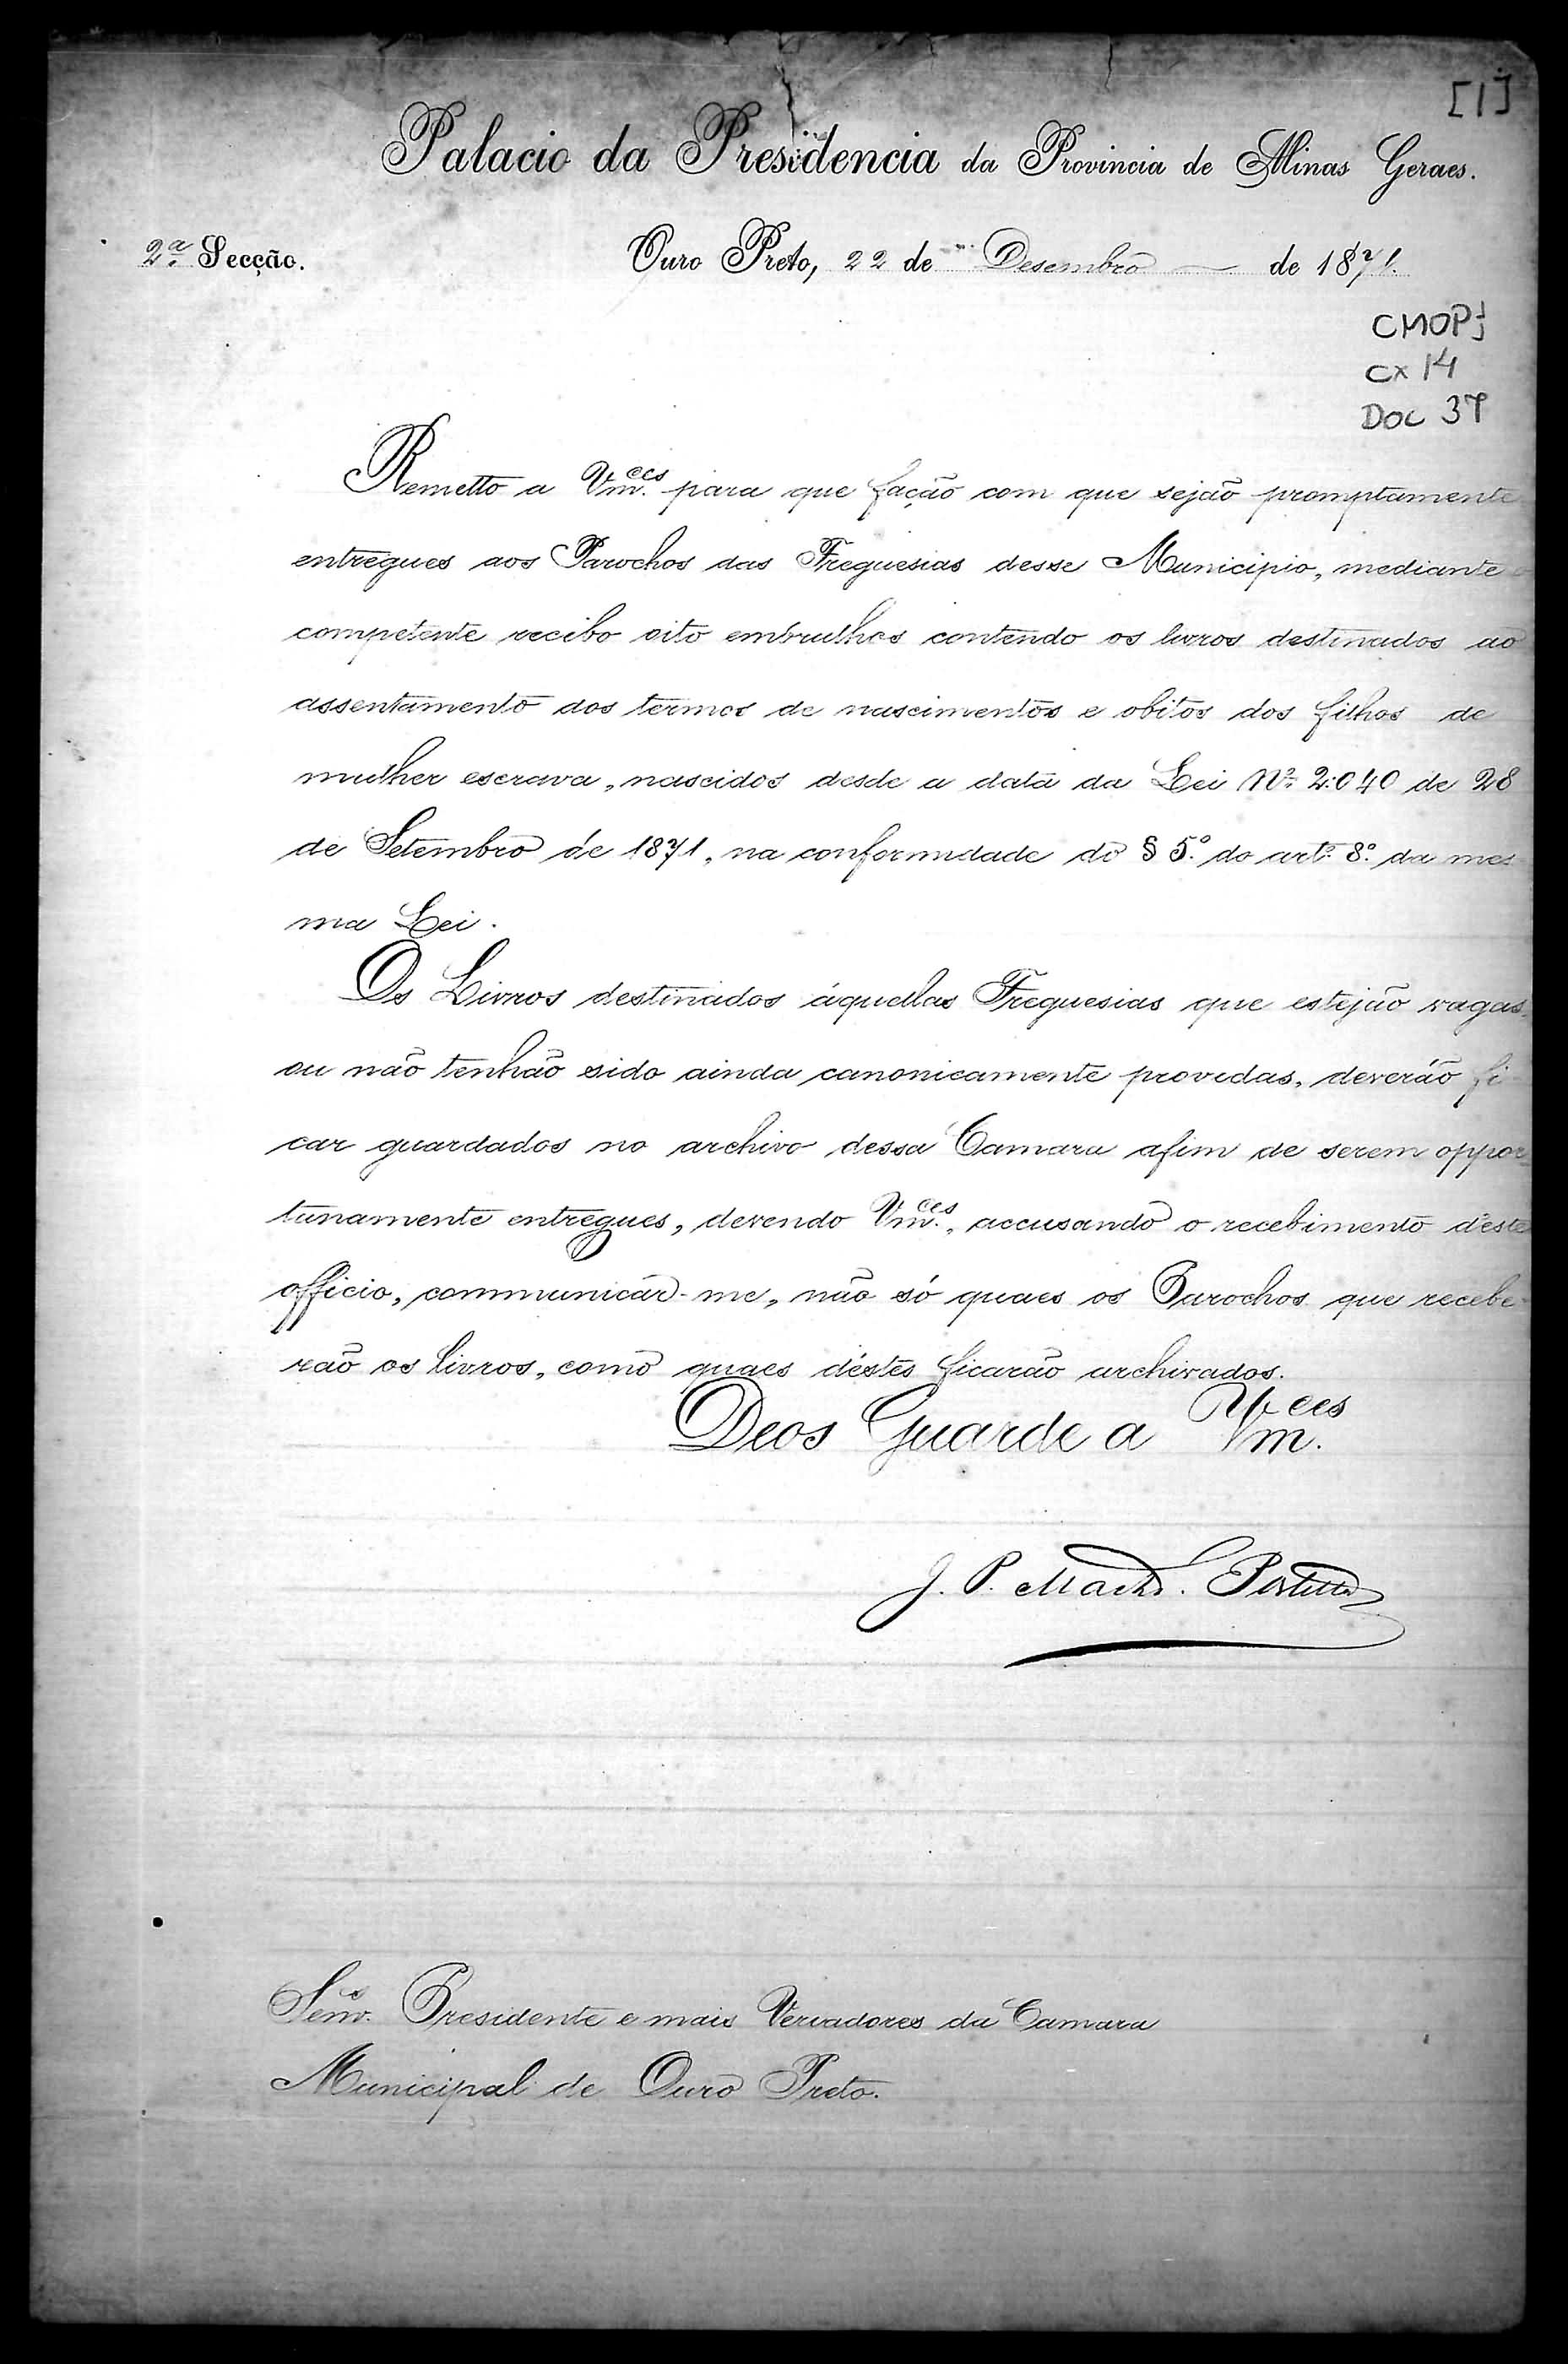 [1]
Palacio da Presidencia da Provincia de Minas Geraes.
2ª Secção.
Ouro Preto, 22 de Desembro de 1871.
CMOP
cx 14
DOC 37
Remetto a Vm.ces para que fação com que sejão promptamente
entregues aos Parochos das Freguesias desse Municipio, mediante o
competente recibo oito embrulhos contendo os livros destinados ao
assentamento dos termos de nascimentos e obitos dos filhos de
mulher escrava, nascidos desde a data da Lei Nº 2:040 de 28
de Setembro de 1871, na conformidade do § 5.º do art.º 8.º da mes
ma Lei.
Os Livros destinados áquellas Freguesias que estejão vagas,
ou não tenhão sido ainda canonicamente providas, deverão fi
car guardados no archivo dessa Camara afim de serem oppor
tunamente entregues, devendo Vm.ces, accusando o recebimento d'este
officio, communicar-me, não só quaes os Parochos que recebe-
rão os livros, como quaes d'estes ficarão archivados.
Deos Guarde a Vm.ces
J. P. Machd.º Portella
Senr.s Presidente e mais Veriadores da Camara
Municipal de Ouro Preto.